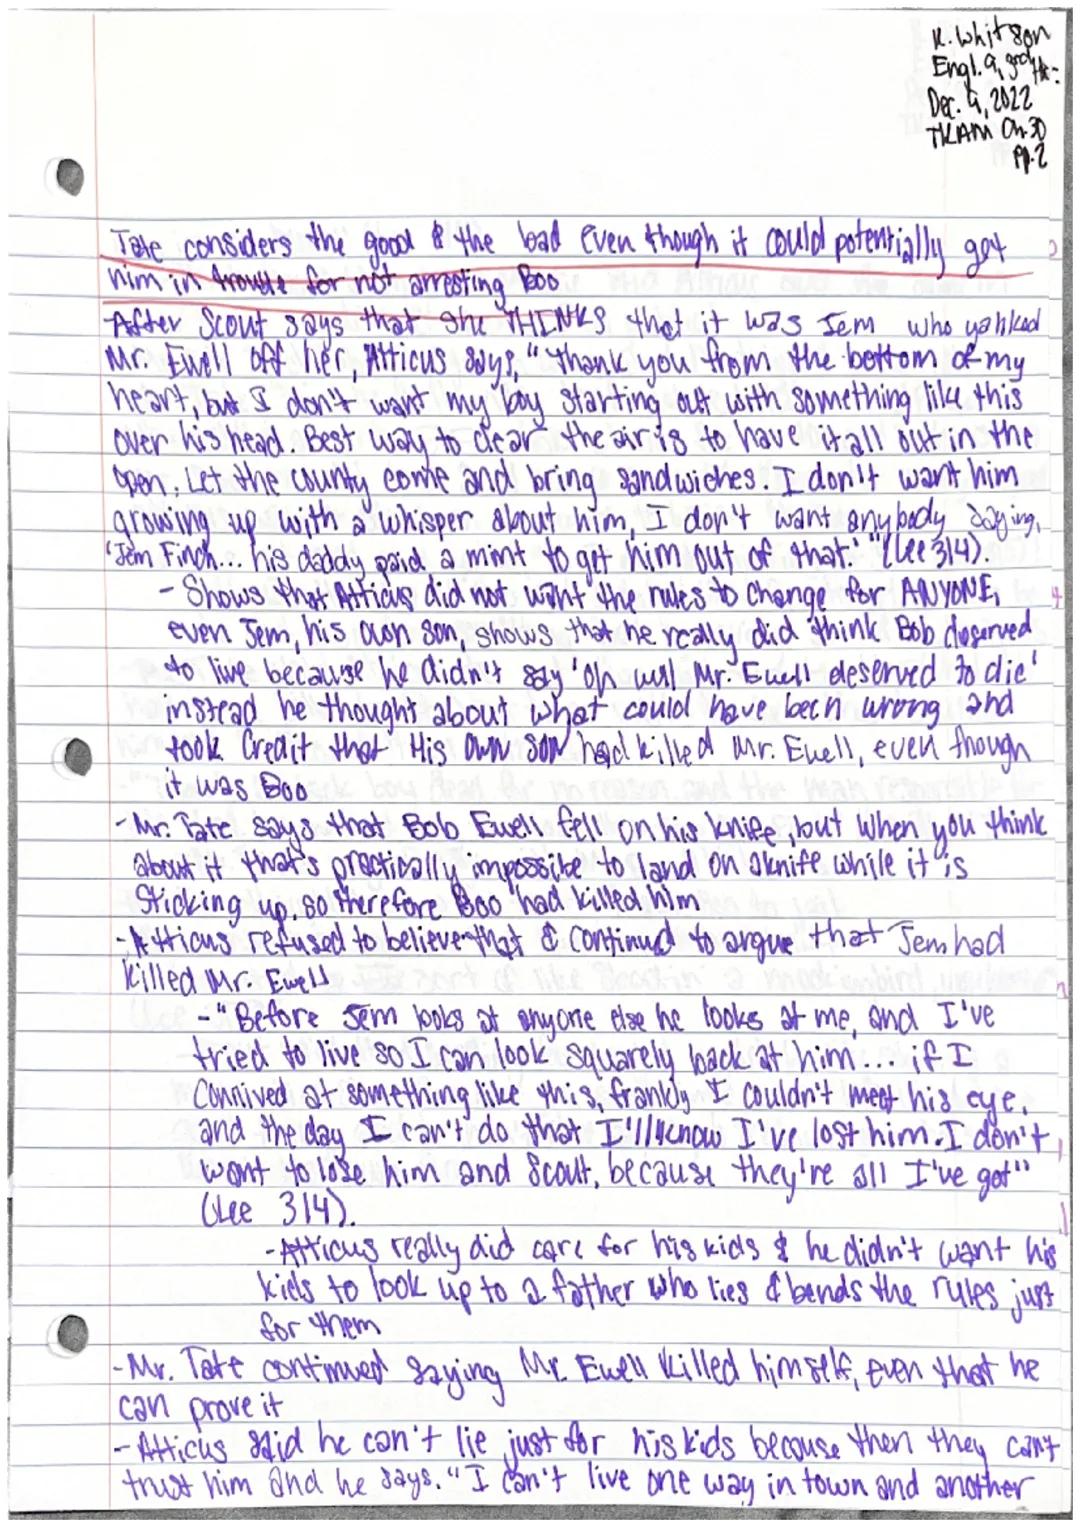 K. Whitson
Engl. 9, 3rd Hr:
Dec. 9, 2022
TKAM Ch. 30
pp. 2
Tate considers the good & the bad even though it could potentially get
him in trouble for not arresting Boo
-After Scout says that she THINKS that it was Jem who yanked
Mr. Ewell off her, Atticus says, "thank you from the bottom of my
heart, but I don't want my boy starting out with something like this
over his head. Best way to clear the air is to have it all out in the
open. Let the county come and bring sandwiches. I don't want him
growing up with a whisper about him, I don't want anybody saying,
'Jem Finch... his daddy paid a mint to get him out of that.'" (Lee 314).
- Shows that Atticus did not want the rules to change for ANYONE,
even Jem, his own son, shows that he really did think Bob deserved
to live because he didn't say 'oh well Mr. Ewell deserved to die'
instead he thought about what could have been wrong and
took credit that His own son had killed Mr. Ewell, even though
it was Boo
-Mr. Tate says that Bob Ewell fell on his knife, but when you think
about it that's practically impossible to land on a knife while it is
sticking up, so therefore Boo had killed him
-Atticus refused to believe that & continued to argue that Jem had
killed Mr. Ewell
-"Before Jem looks at anyone else he looks at me, and I've
tried to live so I can look squarely back at him... if I
connived at something like this, frankly I couldn't meet his eye,
and the day I can't do that I'll know I've lost him. I don't
want to lose him and Scout, because they're all I've got"
(Lee 314).
-Atticus really did care for his kids & he didn't want his
kids to look up to a father who lies & bends the rules just
for them
-Mr. Tate continued saying Mr. Ewell killed himself, even that he
can prove it
-Atticus said he can't lie just for his kids because then they can't
trust him and he says, "I can't live one way in town and another